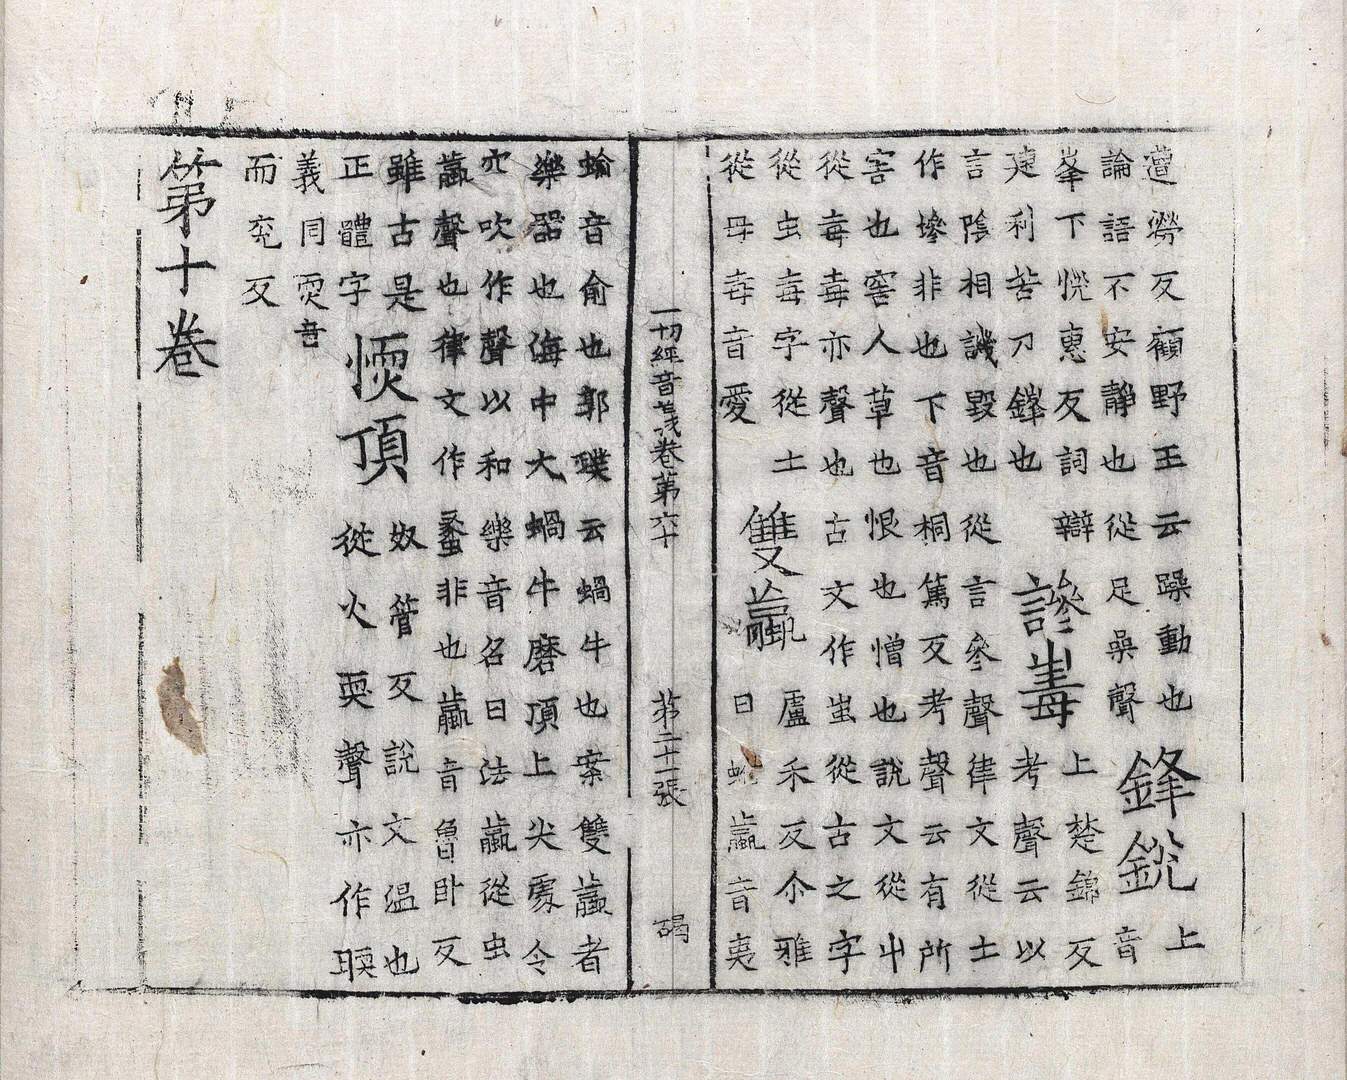 遭勞反顧野王云躁動也
鋒銳
上
論語不安靜也從足喿聲
音
峯下恱惠反詞辯
上楚錦反
遄利苦刀鏵也
譖毒
考聲云以
言陰相譏毀也從言參聲律文從士
作墋非也下音桐篤反考聲云有所
害也害人草也恨也憎也說文從屮
從毒毒亦聲也古文作䖝從古之字
從虫毒字從士
雙蠃
盧禾反尒雅
從毋毒音愛
曰蚹蠃音夷
一切經音義卷第六十
第二十一張
碣
蝓音俞也郭璞云蝸牛也案雙蠃者
樂器也海中大蝸牛磨頂上尖處令
穴吹作聲以和樂音名曰法蠃從虫
蠃聲也律文作蠡非也蠃音魯卧反
雖古是
正體字
煗頂
奴管反說文温也
從火耎聲亦作㬉
義同耎音
而兖反
第十卷